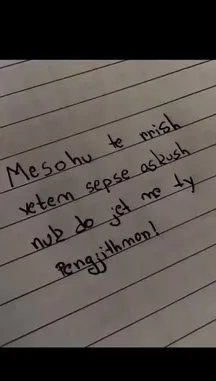 Mesohu te rrish
vetem sepse askush
nuk do jet me ty
Pengjithmon!